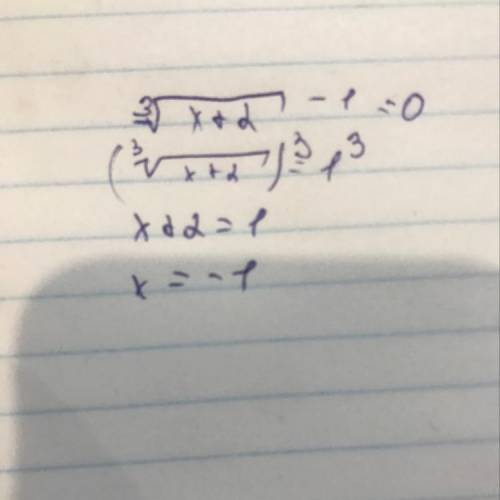 ∛(x+2) - 1 = 0
(∛(x+2))³ = 1³
x+2 = 1
x = -1